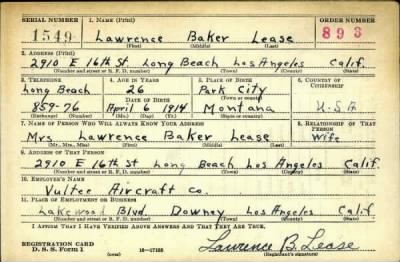 SERIAL NUMBER 1. NAME (Print) ORDER NUMBER
1549 Lawrence Baker Lease 893
(First) (Middle) (Last)
2. ADDRESS (Print)
2910 E 16th St. Long Beach Los Angeles Calif.
(Number and street or R. F. D. number) (Town) (County) (State)
3. TELEPHONE 4. AGE IN YEARS 5. PLACE OF BIRTH 6. COUNTRY OF CITIZENSHIP
Long Beach 26 Park City
DATE OF BIRTH (Town or county)
859-76 April 6 1914 Montana U.S.A
(Exchange) (Number) (Mo.) (Day) (Yr.) (State or country)
7. NAME OF PERSON WHO WILL ALWAYS KNOW YOUR ADDRESS 8. RELATIONSHIP OF THAT PERSON
Mrs Lawrence Baker Lease Wife
(Mr., Mrs., Miss) (First) (Middle) (Last)
9. ADDRESS OF THAT PERSON
2910 E 16th St Long Beach Los Angeles Calif.
(Number and street or R. F. D. number) (Town) (County) (State)
10. EMPLOYER'S NAME
Vultee Aircraft Co.
11. PLACE OF EMPLOYMENT OR BUSINESS
Lakewood Blvd. Downey Los Angeles Calif
(Number and street or R. F. D. number) (Town) (County) (State)
I AFFIRM THAT I HAVE VERIFIED ABOVE ANSWERS AND THAT THEY ARE TRUE.
REGISTRATION CARD
D. S. S. FORM 1 (over) 16-17105 Lawrence B. Lease
(Registrant's signature)